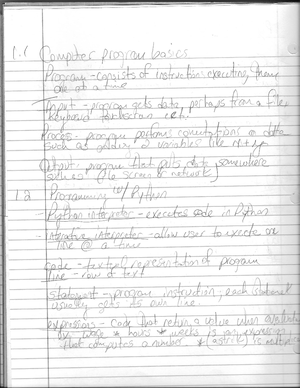 1.1 Computer program basics
Program - consists of instructions executing
one at a time
Input - program gets data, perhaps from a file,
keyboard
Process - program performs computations on data
such as adding 2 variables like x+y
Output - program that puts data somewhere
such as (file screen or network)
1.2 Programming w/ Python
- Python interpreter - executes code in Python
- interactive interpreter - allow user to execute one
line @ a time
code - textual representation of program
line - row of text
statement - program instruction, each statement
usually gets its own line.
expressions - code that return a value when evaluated
wage * hours * weeks is an expression
that computes a number * (asterisk) is